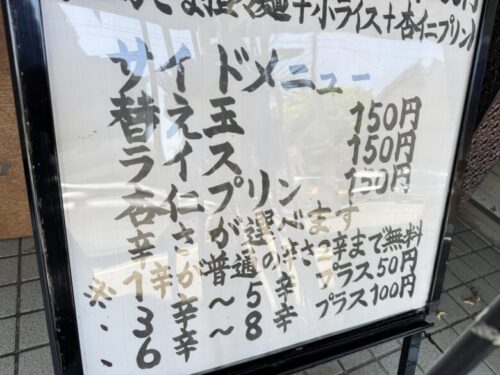 担麺+小ライス+杏仁プリン
サイドメニュー
替え玉 150円
ライス 150円
杏仁プリン 150円
辛さが選べます
※1辛が普通の辛さ2辛まで無料
・3辛~5辛 プラス50円
・6辛~8辛 プラス100円